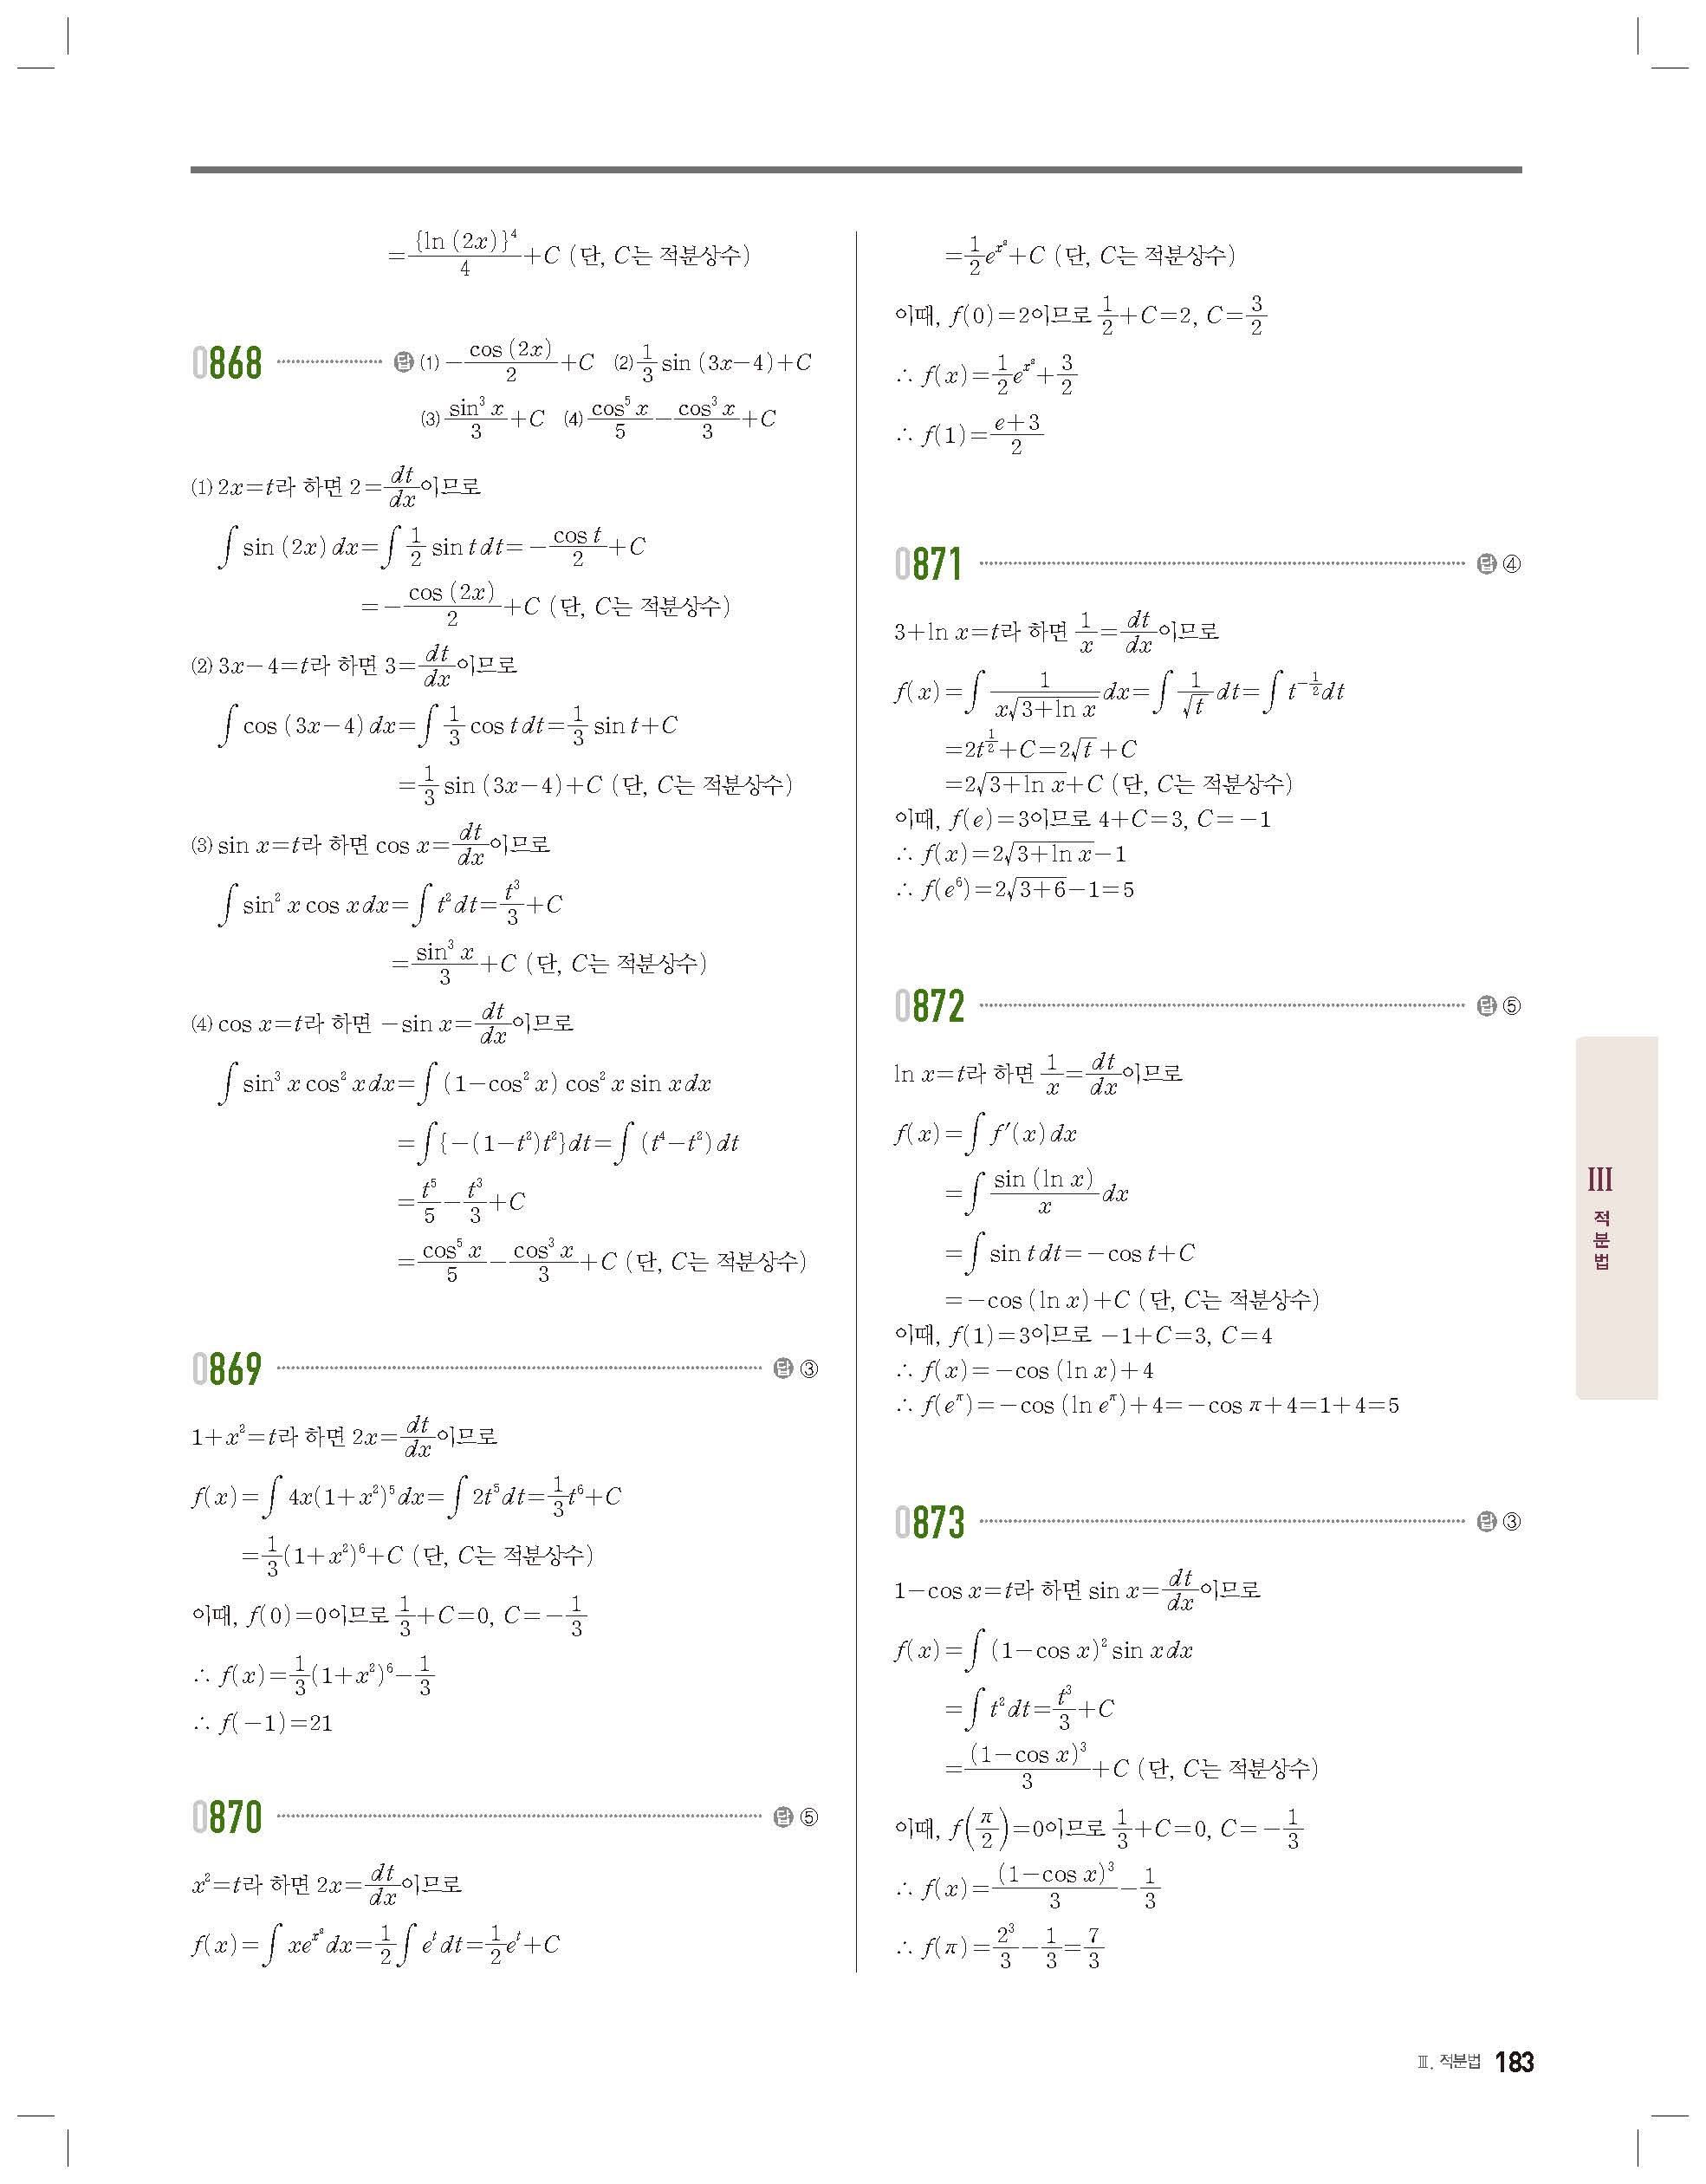 ={ln (2x)}⁴/4+C (단, C는 적분상수)
0868 답 ⑴ -cos (2x)/2+C ⑵ 1/3 sin (3x-4)+C
⑶ sin³ x/3+C ⑷ cos⁵ x/5-cos³ x/3+C
⑴ 2x=t라 하면 2=dt/dx이므로
∫sin (2x) dx=∫1/2 sin t dt=-cos t/2+C
=-cos (2x)/2+C (단, C는 적분상수)
⑵ 3x-4=t라 하면 3=dt/dx이므로
∫cos (3x-4) dx=∫1/3 cos t dt=1/3 sin t+C
=1/3 sin (3x-4)+C (단, C는 적분상수)
⑶ sin x=t라 하면 cos x=dt/dx이므로
∫sin² x cos x dx=∫t² dt=t³/3+C
=sin³ x/3+C (단, C는 적분상수)
⑷ cos x=t라 하면 -sin x=dt/dx이므로
∫sin³ x cos² x dx=∫(1-cos² x) cos² x sin x dx
=∫{-(1-t²)t²}dt=∫(t⁴-t²) dt
=t⁵/5-t³/3+C
=cos⁵ x/5-cos³ x/3+C (단, C는 적분상수)
0869 답 ③
1+x²=t라 하면 2x=dt/dx이므로
f(x)=∫4x(1+x²)⁵ dx=∫2t⁵ dt=1/3 t⁶+C
=1/3(1+x²)⁶+C (단, C는 적분상수)
이때, f(0)=0이므로 1/3+C=0, C=-1/3
∴ f(x)=1/3(1+x²)⁶-1/3
∴ f(-1)=21
0870 답 ⑤
x²=t라 하면 2x=dt/dx이므로
f(x)=∫xe^(x²) dx=1/2∫eᵗ dt=1/2 eᵗ+C
=1/2 e^(x²)+C (단, C는 적분상수)
이때, f(0)=2이므로 1/2+C=2, C=3/2
∴ f(x)=1/2 e^(x²)+3/2
∴ f(1)=(e+3)/2
0871 답 ④
3+ln x=t라 하면 1/x=dt/dx이므로
f(x)=∫1/(x√(3+ln x)) dx=∫1/√t dt=∫t^(-1/2) dt
=2t^(1/2)+C=2√t+C
=2√(3+ln x)+C (단, C는 적분상수)
이때, f(e)=3이므로 4+C=3, C=-1
∴ f(x)=2√(3+ln x)-1
∴ f(e⁶)=2√(3+6)-1=5
0872 답 ⑤
ln x=t라 하면 1/x=dt/dx이므로
f(x)=∫f′(x) dx
=∫sin (ln x)/x dx
=∫sin t dt=-cos t+C
=-cos (ln x)+C (단, C는 적분상수)
이때, f(1)=3이므로 -1+C=3, C=4
∴ f(x)=-cos (ln x)+4
∴ f(e^π)=-cos (ln e^π)+4=-cos π+4=1+4=5
0873 답 ③
1-cos x=t라 하면 sin x=dt/dx이므로
f(x)=∫(1-cos x)² sin x dx
=∫t² dt=t³/3+C
=(1-cos x)³/3+C (단, C는 적분상수)
이때, f(π/2)=0이므로 1/3+C=0, C=-1/3
∴ f(x)=(1-cos x)³/3-1/3
∴ f(π)=2³/3-1/3=7/3
Ⅲ
적분법
Ⅲ. 적분법 183